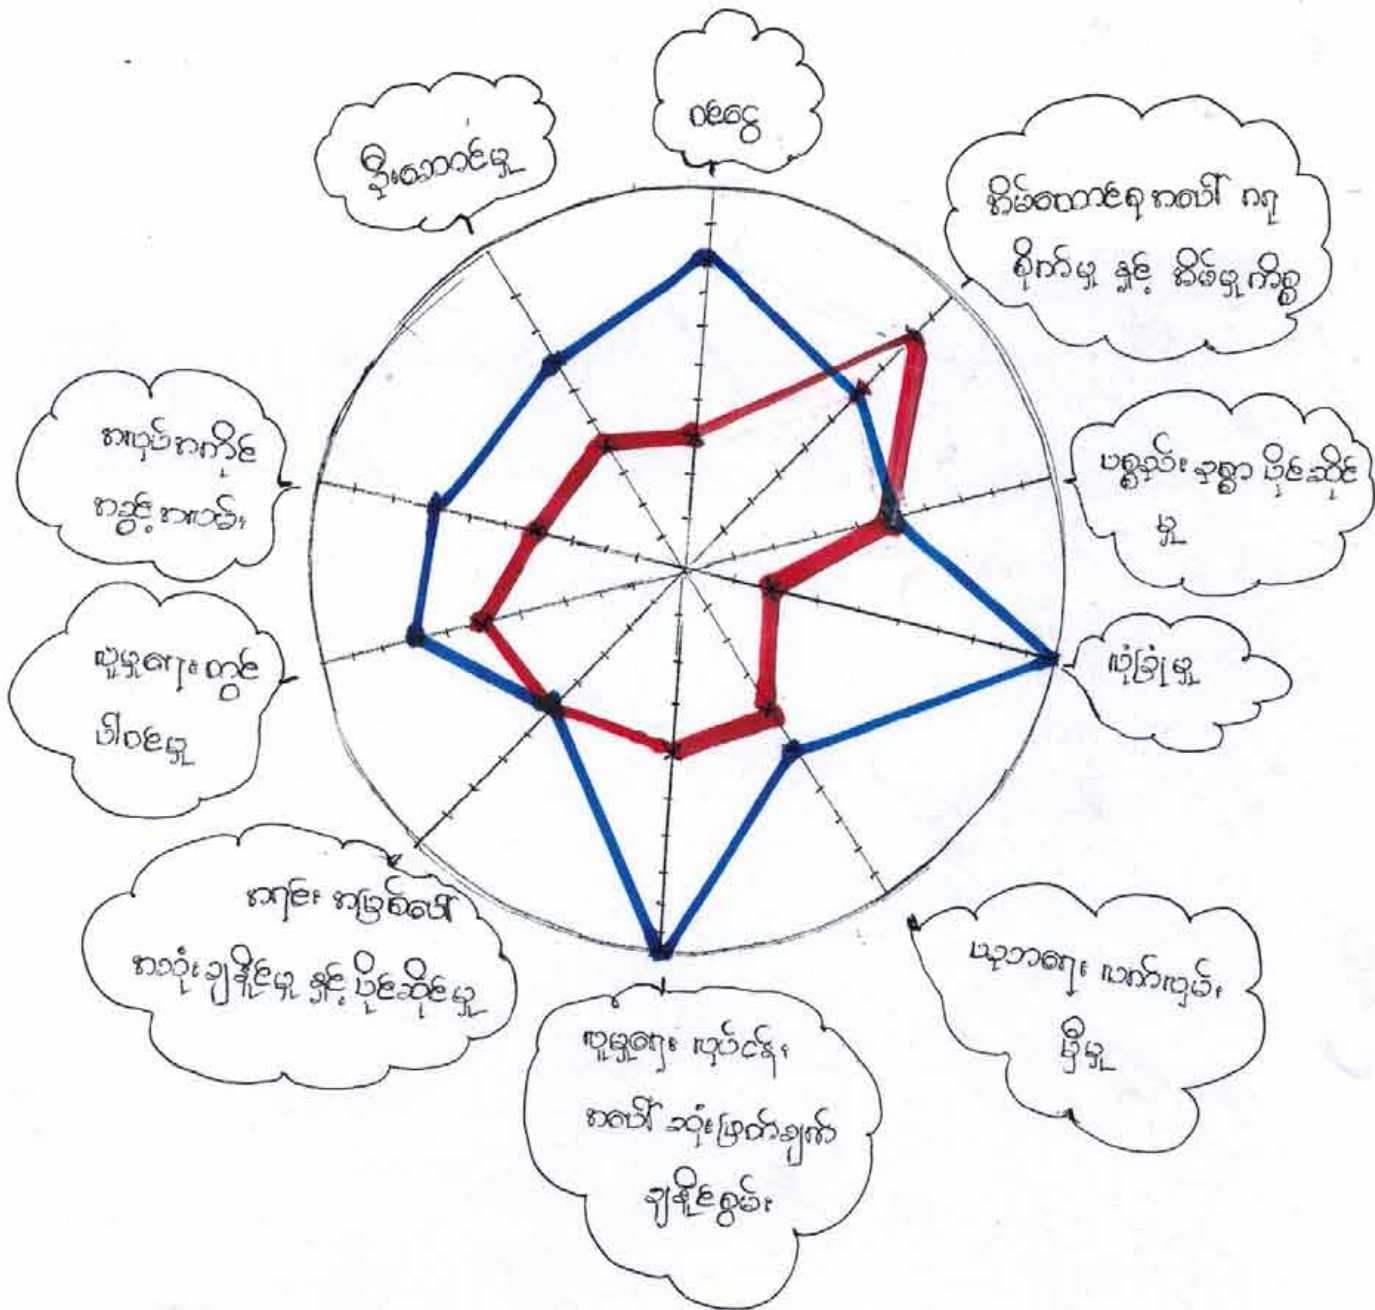 ဝင်ငွေ
အိမ်ထောင်ရု အပေါ် ဂရု
စိုက်မှု နှင့် အိမ်မှုကိစ္စ
ပစ္စည်း ဥစ္စာ ပိုင်ဆိုင်
မှု
လုံခြုံမှု
ပညာရေး လက်လှမ်း
မှီမှု
လူမှုရေး လုပ်ငန်း
အပေါ် ဆုံးဖြတ်ချက်
ချနိုင်စွမ်း
အရင်း အမြစ်ပေါ်
အသုံးချနိုင်မှု နှင့် ပိုင်ဆိုင်မှု
လူမှုရေး တွင်
ပါဝင်မှု
အလုပ်အကိုင်
အခွင့်အလမ်း
ဦးဆောင်မှု